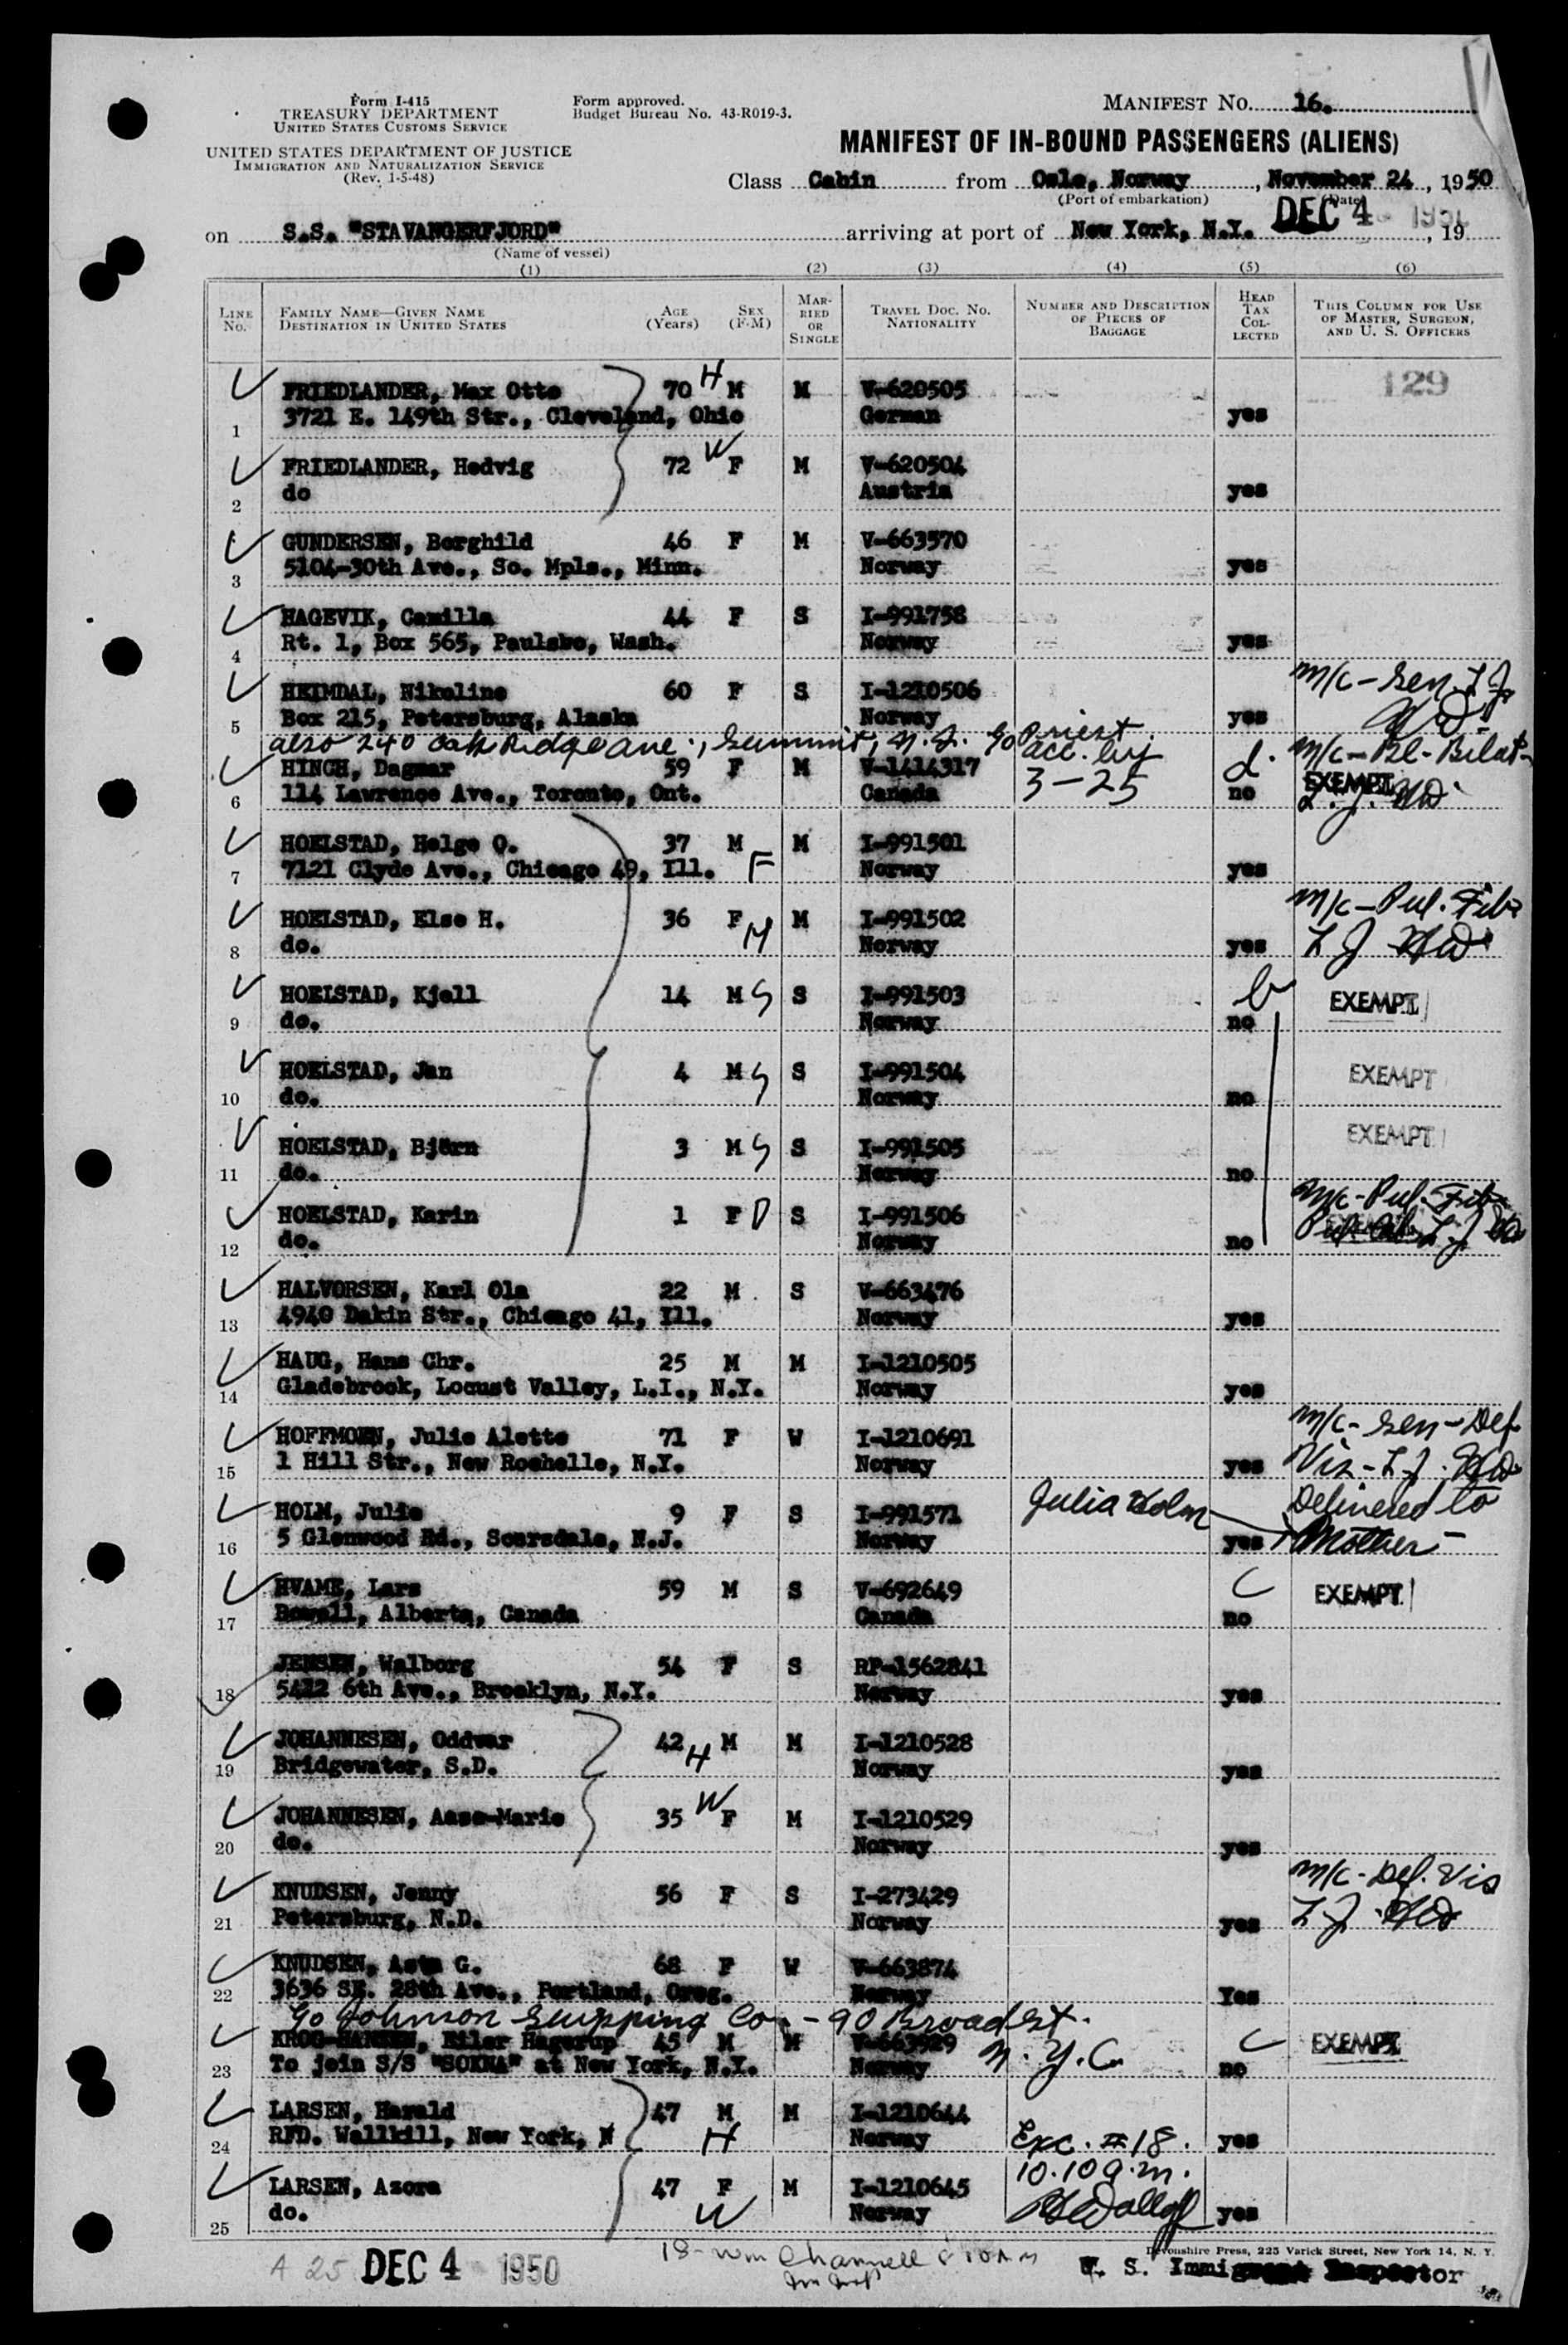 Form I-415
TREASURY DEPARTMENT
UNITED STATES CUSTOMS SERVICE
UNITED STATES DEPARTMENT OF JUSTICE
IMMIGRATION AND NATURALIZATION SERVICE
(Rev. 1-5-48)
Form approved.
Budget Bureau No. 43-R019-3.
MANIFEST NO. 16.
MANIFEST OF IN-BOUND PASSENGERS (ALIENS)
Class Cabin from Oslo, Norway, November 24, 1950
(Port of embarkation) (Date)
DEC 4 1950
on S.S. "STAVANGERFJORD" arriving at port of New York, N.Y. , 19
(Name of vessel)
(1) (2) (3) (4) (5) (6)
LINE NO. FAMILY NAME—GIVEN NAME DESTINATION IN UNITED STATES AGE (Years) SEX (F-M) MARRIED OR SINGLE TRAVEL DOC. NO. NATIONALITY NUMBER AND DESCRIPTION OF PIECES OF BAGGAGE HEAD TAX COLLECTED THIS COLUMN FOR USE OF MASTER, SURGEON, AND U. S. OFFICERS
129
FRIEDLANDER, Max Otto 70 H M M V-620505
1 3721 E. 149th Str., Cleveland, Ohio German yes
FRIEDLANDER, Hedvig 72 W F M V-620504
2 do Austria yes
GUNDERSEN, Borghild 46 F M V-663570
3 5104-30th Ave., So. Mpls., Minn. Norway yes
HAGEVIK, Camilla 44 F S I-991758
4 Rt. 1, Box 565, Paulsbo, Wash. Norway yes
HEIMDAL, Nikoline 60 F S I-1210506 m/c - Gen. L J
5 Box 215, Petersburg, Alaska Norway yes
also 240 Oak Ridge Ave., Summit, N.J. c/o Priest
HINCH, Dagmar 59 F M V-1414317 acc. by d. m/c-Bl-Bilat-
6 114 Lawrence Ave., Toronto, Ont. Canada 3-25 no EXEMPT L. J.
HOELSTAD, Helge O. 37 M M I-991501
7 7121 Clyde Ave., Chicago 49, Ill. F Norway yes
HOELSTAD, Else H. 36 F M I-991502 m/c-Pul. Fib
8 do. M Norway yes L J
HOELSTAD, Kjell 14 M S S I-991503 b EXEMPT
9 do. Norway no
HOELSTAD, Jan 4 M S S I-991504 EXEMPT
10 do. Norway no
HOELSTAD, Björn 3 M S S I-991505 EXEMPT
11 do. Norway no
HOELSTAD, Karin 1 F D S I-991506 m/c-Pul. Fib
12 do. Norway no L J
HALVORSEN, Karl Ola 22 M S V-663476
13 4940 Dakin Str., Chicago 41, Ill. Norway yes
HAUG, Hans Chr. 25 M M I-1210505
14 Gladebrook, Locust Valley, L.I., N.Y. Norway yes
HOFFMOEN, Julie Alette 71 F W I-1210691 m/c-Gen-Def
15 1 Hill Str., New Rochelle, N.Y. Norway yes Vis-L J.
HOLM, Julie 9 F S I-991571 Julia Holm Delivered to
16 5 Glenwood Rd., Scarsdale, N.J. Norway yes Mother-
HVAME, Lars 59 M S V-692649 c EXEMPT
17 Bowell, Alberta, Canada Canada no
JENSEN, Walborg 54 F S RP-1562841
18 5412 6th Ave., Brooklyn, N.Y. Norway yes
JOHANNESEN, Oddvar 42 H M M I-1210528
19 Bridgewater, S.D. Norway yes
JOHANNESEN, Aase-Marie 35 W F M I-1210529
20 do. Norway yes
KNUDSEN, Jenny 56 F S I-273429 m/c-Def. Vis
21 Petersburg, N.D. Norway yes L J.
KNUDSEN, Asta G. 68 F W V-663874
22 3636 SE. 28th Ave., Portland, Oreg. Norway Yes
c/o Johnson Shipping Co. - 90 Broad St.
KROG-HANSEN, Eiler Hagerup 45 M M V-663929 N.Y.C. c EXEMPT
23 To join S/S "SOKNA" at New York, N.Y. Norway no
LARSEN, Harald 47 M M I-1210644
24 RFD. Wallkill, New York, N H Norway Exc. #18. yes
LARSEN, Azora 47 F M I-1210645 10.10 a.m.
25 do. W Norway yes
Devonshire Press, 225 Varick Street, New York 14, N. Y.
A 25 DEC 4 1950
18- Wm Channell 10 AM
U. S. Immigrant Inspector